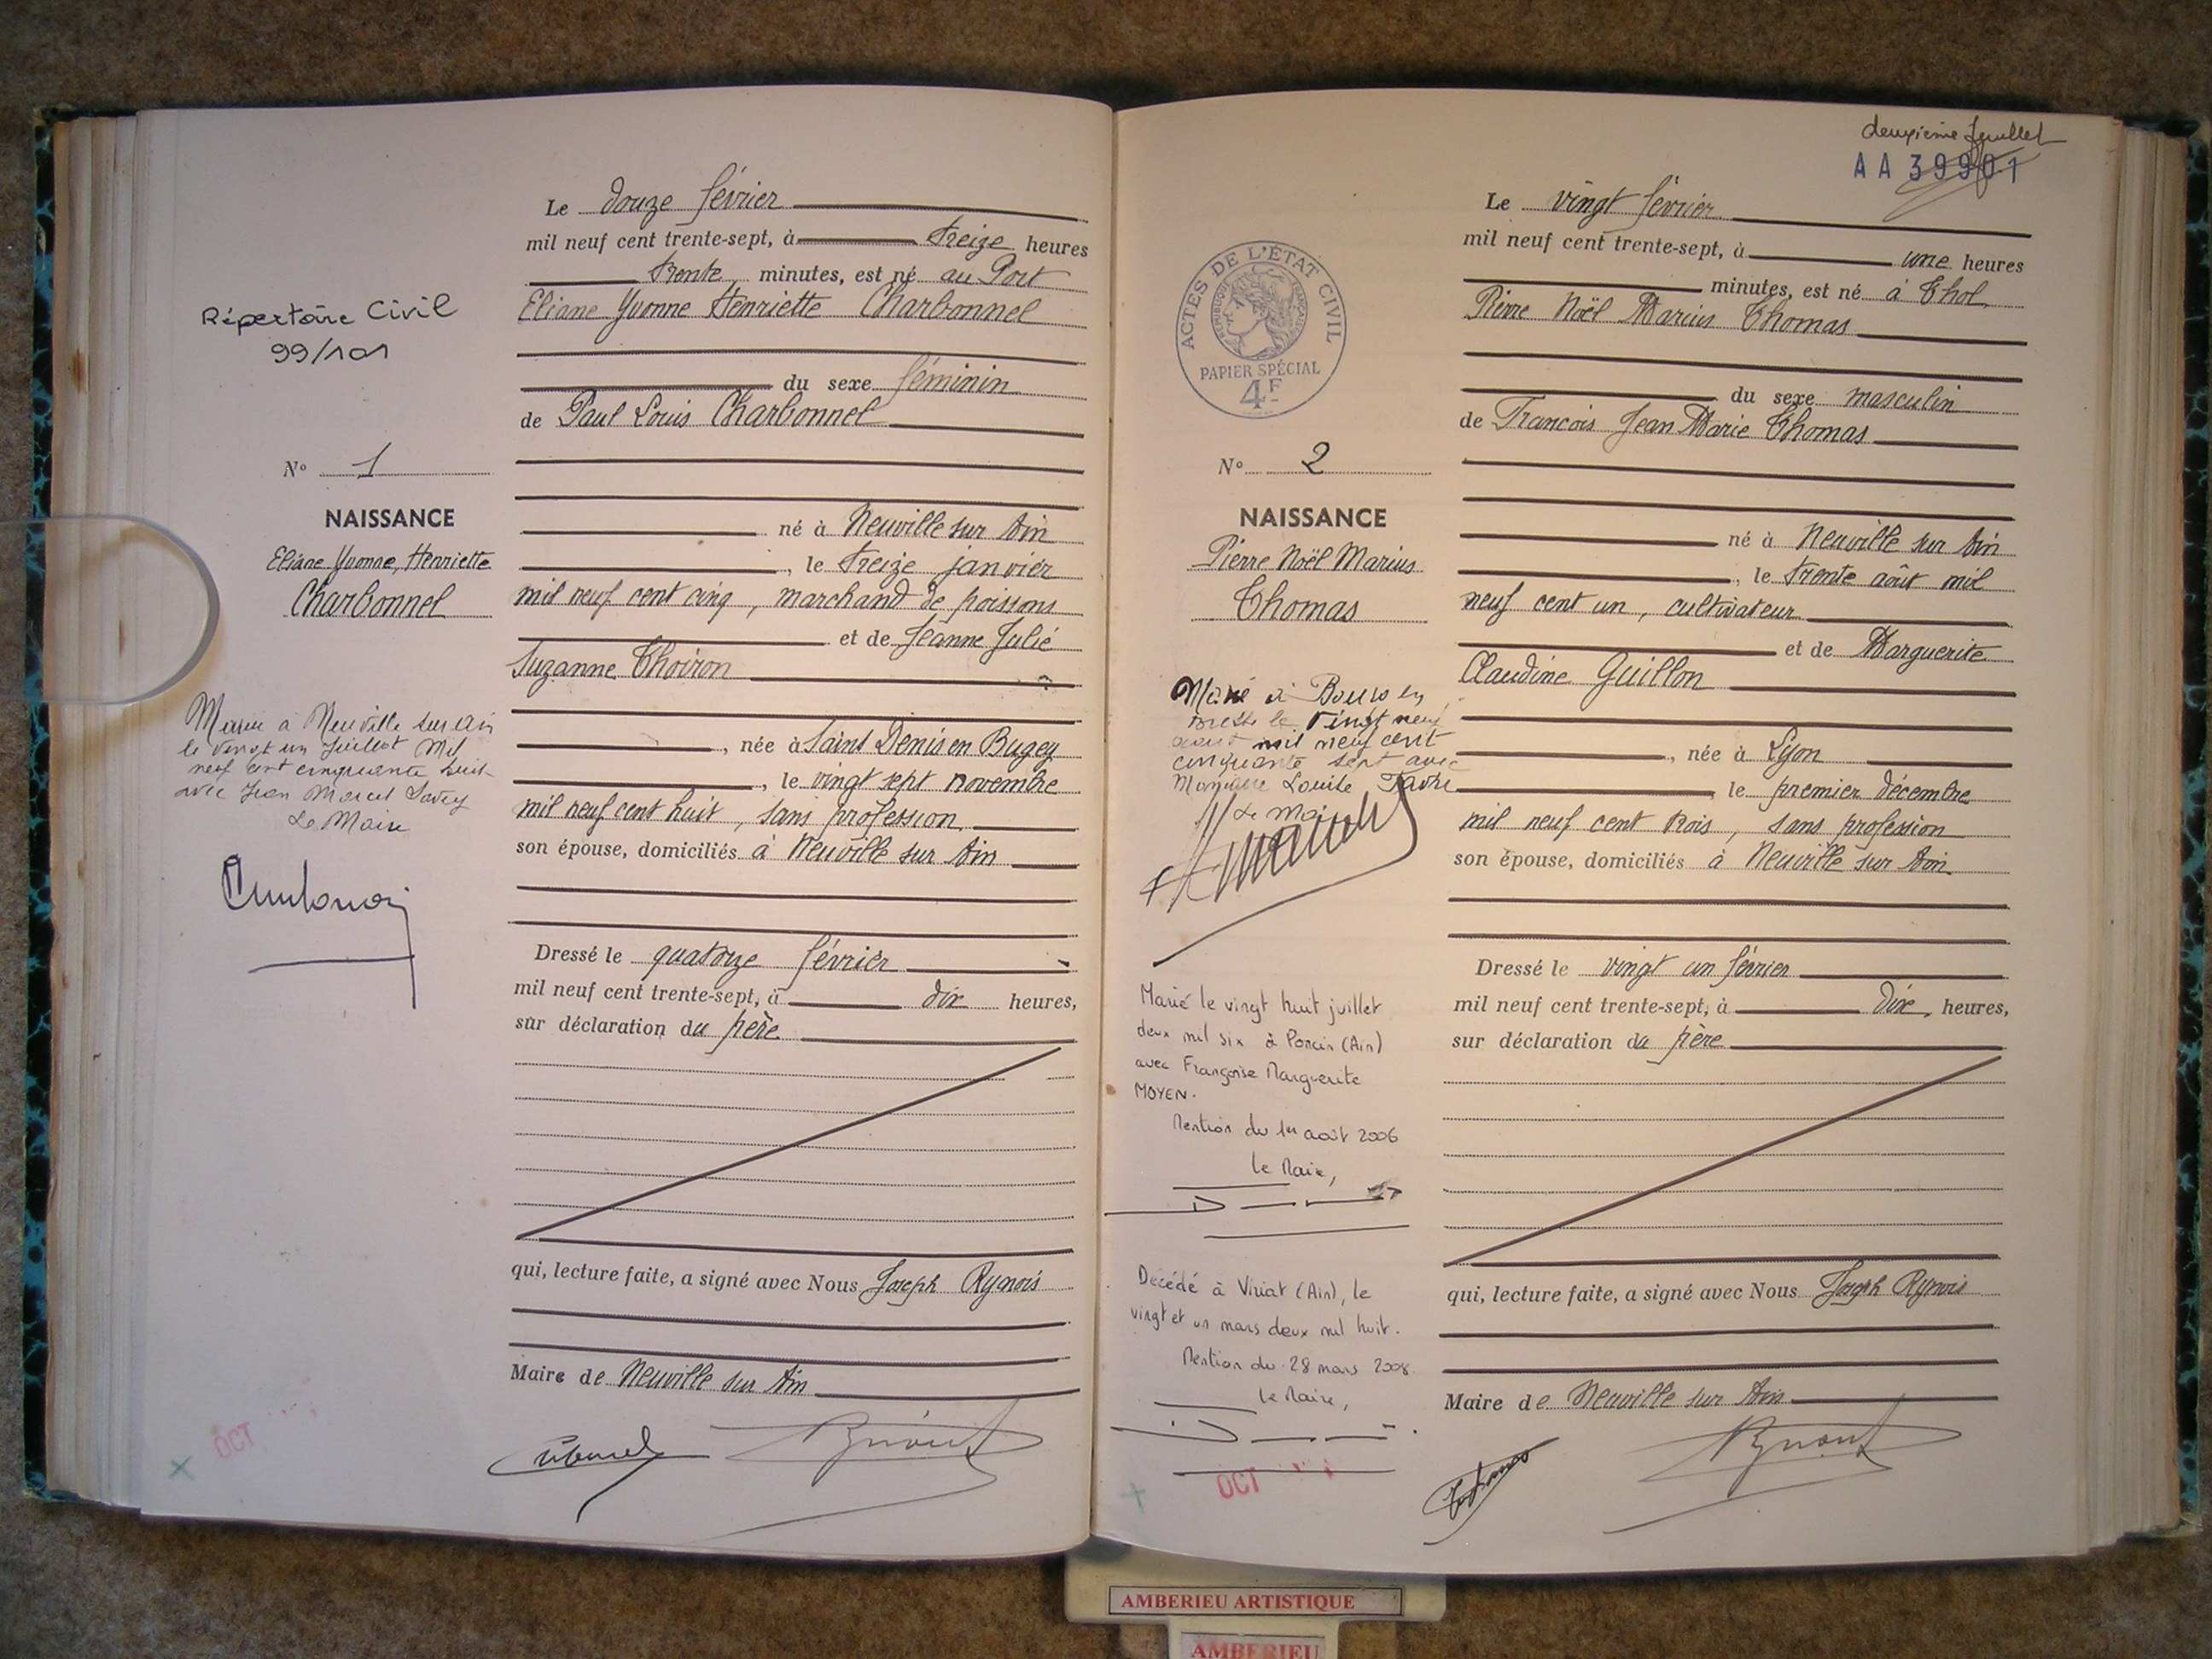 Répertoire Civil
99/101
N° 1
NAISSANCE
Eliane Yvonne, Henriette
Charbonnel
Mariée à Neuville sur Ain
le vingt un juillet mil
neuf cent cinquante huit
avec Jean Marcel
Le Maire
Le douze février
mil neuf cent trente-sept, à treize heures
trente minutes, est né au Port
Eliane Yvonne Henriette Charbonnel
du sexe féminin
de Paul Louis Charbonnel
né à Neuville sur Ain
, le treize janvier
mil neuf cent cinq, marchand de poissons
et de Jeanne Julie
Suzanne Thoiron
, née à Saint Denis en Bugey
, le vingt sept novembre
mil neuf cent huit, sans profession
son épouse, domiciliés à Neuville sur Ain
Dressé le quatorze février
mil neuf cent trente-sept, à dix heures,
sur déclaration du père
qui, lecture faite, a signé avec Nous Joseph Rynois
Maire de Neuville sur Ain
OCT
deuxième feuillet
AA 39901
ACTES DE L'ÉTAT CIVIL
RÉPUBLIQUE FRANÇAISE
PAPIER SPÉCIAL
4F
N° 2
NAISSANCE
Pierre Noël Marius
Thomas
Marié à Bourg en
Bresse le vingt neuf
août mil neuf cent
cinquante sept avec
Monique Louise Favre
Le Maire
Marié le vingt huit juillet
deux mil six à Poncin (Ain)
avec Françoise Marguerite
MOYEN.
Mention du 1er août 2006
Le Maire,
Décédé à Viriat (Ain), le
vingt et un mars deux mil huit.
Mention du 28 mars 2008.
Le Maire,
OCT
Le vingt février
mil neuf cent trente-sept, à une heures
minutes, est né à Thol
Pierre Noël Marius Thomas
du sexe masculin
de François Jean Marie Thomas
né à Neuville sur Ain
, le trente août mil
neuf cent un, cultivateur
et de Marguerite
Claudine Guillon
, née à Lyon
le premier décembre
mil neuf cent trois, sans profession
son épouse, domiciliés à Neuville sur Ain
Dressé le vingt un février
mil neuf cent trente-sept, à dix heures,
sur déclaration du père
qui, lecture faite, a signé avec Nous Joseph Rynois
Maire de Neuville sur Ain
AMBERIEU ARTISTIQUE
AMBERIEU